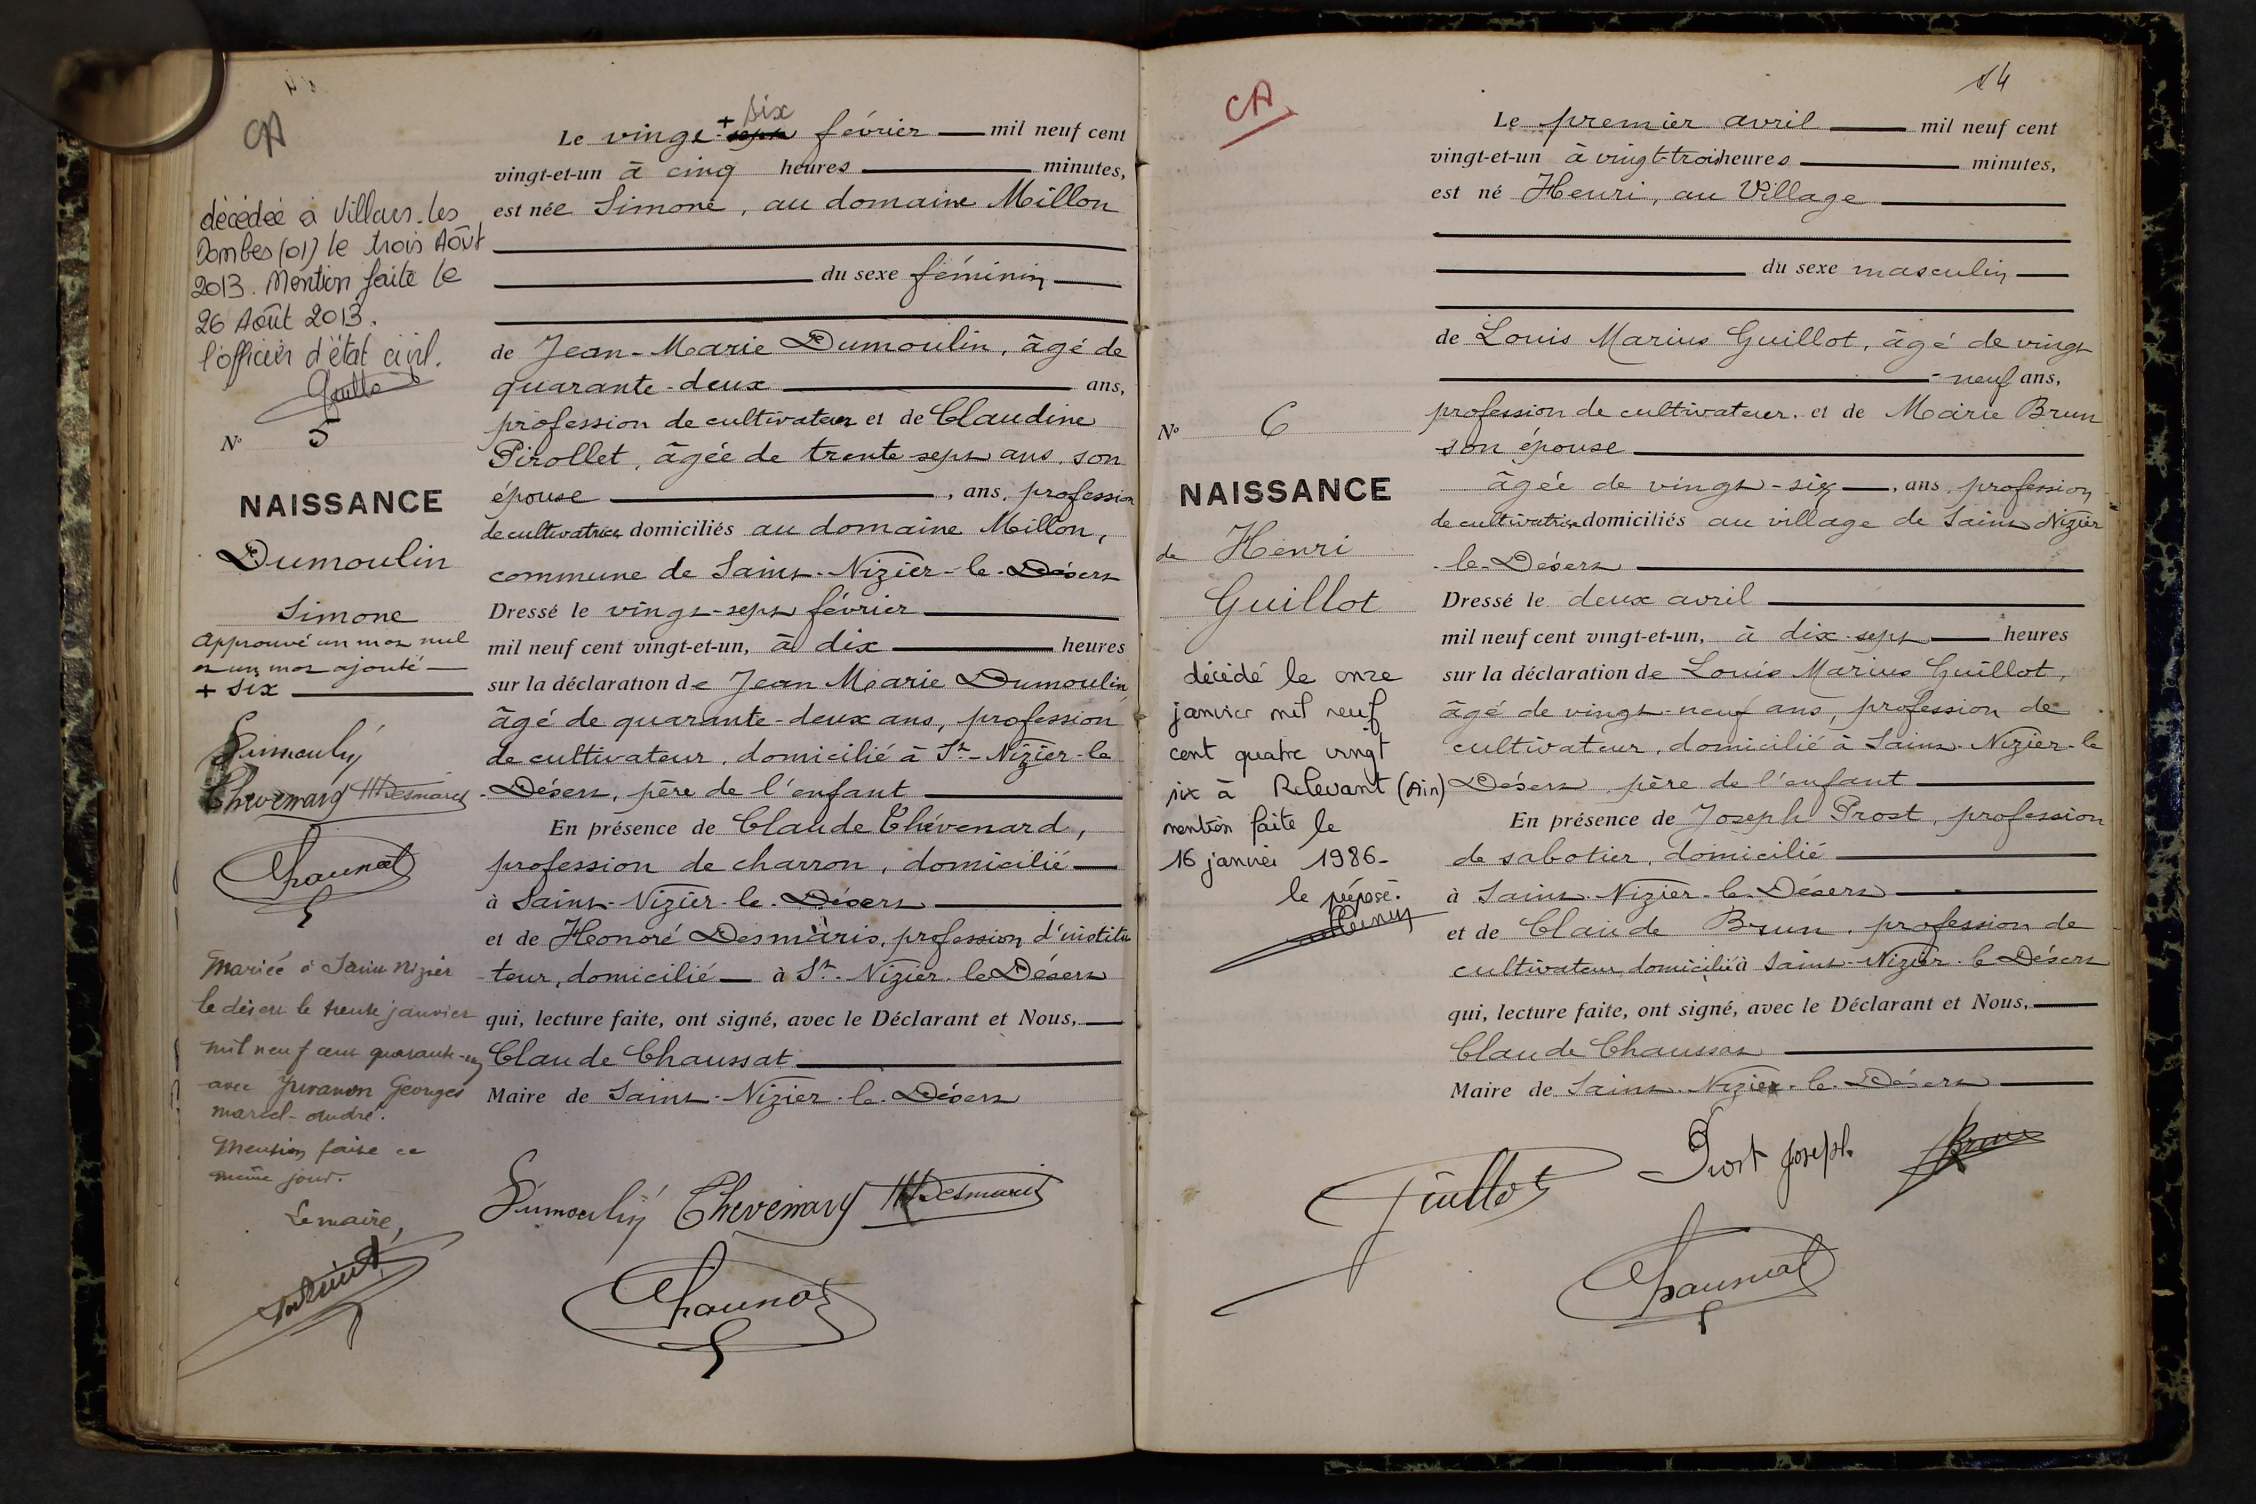 CA
décédée à Villars-les
Dombes (01) le trois Août
2013. Mention faite le
26 Août 2013.
l'officier d'état civil.
N° 5
NAISSANCE
Dumoulin
Simone
Approuvé un mot nul
et un mot ajouté
+ six
Dumoulin
Chevenard HDesmaris
Chaussat
Mariée à Saint Nizier
le désert le trente janvier
mil neuf cent quarante-un
avec Juvanon Georges
marcel-andré.
Mention faite ce
même jour.
Le maire,
Le vingt-+ sept six février mil neuf cent
vingt-et-un à cinq heures minutes,
est née Simone, au domaine Millon
du sexe féminin
de Jean-Marie Dumoulin, âgé de
quarante-deux ans,
profession de cultivateur et de Claudine
Pirollet, âgée de trente-sept ans, son
épouse , ans, profession
de cultivatrice domiciliés au domaine Millon,
commune de Saint-Nizier-le-Désert
Dressé le vingt-sept février
mil neuf cent vingt-et-un, à dix heures
sur la déclaration de Jean Marie Dumoulin
âgé de quarante-deux ans, profession
de cultivateur, domicilié à St-Nizier-le
-Désert, père de l'enfant
En présence de Claude Thévenard,
profession de charron, domicilié
à Saint-Nizier-le-Désert
et de Honoré Desmaris, profession d'institu
-teur, domicilié à St-Nizier-le Désert
qui, lecture faite, ont signé, avec le Déclarant et Nous,
Claude Chaussat
Maire de Saint-Nizier-le-Désert
Dumoulin Chevenard HDesmaris
Chaussat
CA
14
N° 6
NAISSANCE
de Henri
Guillot
décédé le onze
janvier mil neuf
cent quatre vingt
six à Relevant (Ain)
mention faite le
16 janvier 1986-
le préposé.
Le premier avril mil neuf cent
vingt-et-un à vingt-trois heures minutes,
est né Henri, au Village
du sexe masculin
de Louis Marius Guillot, âgé de vingt
-neuf ans,
profession de cultivateur. et de Marie Brun
son épouse
âgée de vingt-six , ans, profession
de cultivatrice domiciliés au village de Saint Nizier
-le-Désert
Dressé le deux avril
mil neuf cent vingt-et-un, à dix-sept heures
sur la déclaration de Louis Marius Guillot,
âgé de vingt-neuf ans, profession de
cultivateur, domicilié à Saint-Nizier-le
Désert père de l'enfant
En présence de Joseph Prost, profession
de sabotier, domicilié
à Saint-Nizier-le-Désert
et de Claude Brun, profession de
cultivateur, domicilié à Saint-Nizier-le Désert
qui, lecture faite, ont signé, avec le Déclarant et Nous,
Claude Chaussat
Maire de Saint-Nizier-le-Désert
Guillot Prost Joseph Brun
Chaussat